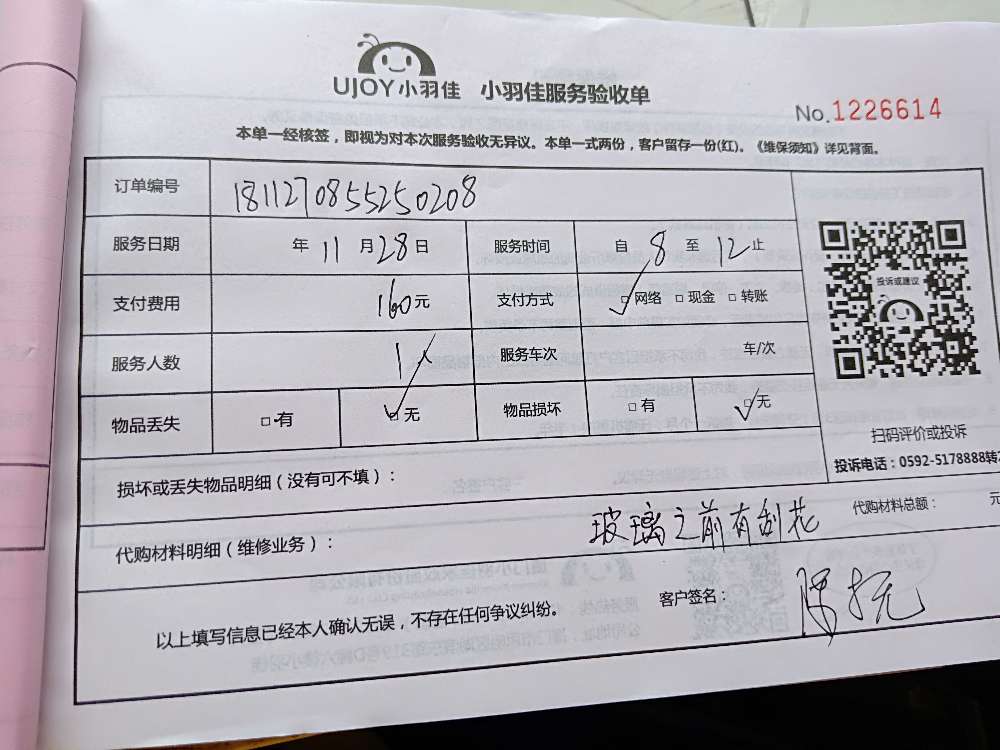 UJOY小羽佳 小羽佳服务验收单
No.1226614
本单一经核签，即视为对本次服务验收无异议。本单一式两份，客户留存一份(红)。《维保须知》详见背面。
订单编号 1811270855250208
服务日期 年 11 月 28 日 服务时间 自 8 至 12 止
支付费用 160元 支付方式 ☑网络 □现金 □转账
服务人数 1人 服务车次 车/次
物品丢失 □有 ☑无 物品损坏 □有 ☑无
投诉或建议
扫码评价或投诉
投诉电话：0592-5178888转2
损坏或丢失物品明细（没有可不填）：
代购材料明细（维修业务）： 玻璃之前有刮花 代购材料总额： 元
以上填写信息已经本人确认无误，不存在任何争议纠纷。 客户签名：